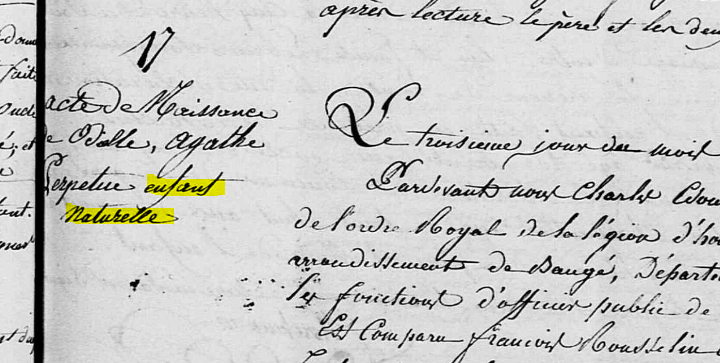 après lecture le père et les deux
17
acte de Naissance
de Odille, agathe
Perpetue enfant
Naturelle
Le troisieme jour du mois
Pardevant nous Charles
de l'ordre Royal de la légion d'hon
rrondissement de Baugé, Départe
les fonctions d'officier public de
Est Comparu francois Rousselin